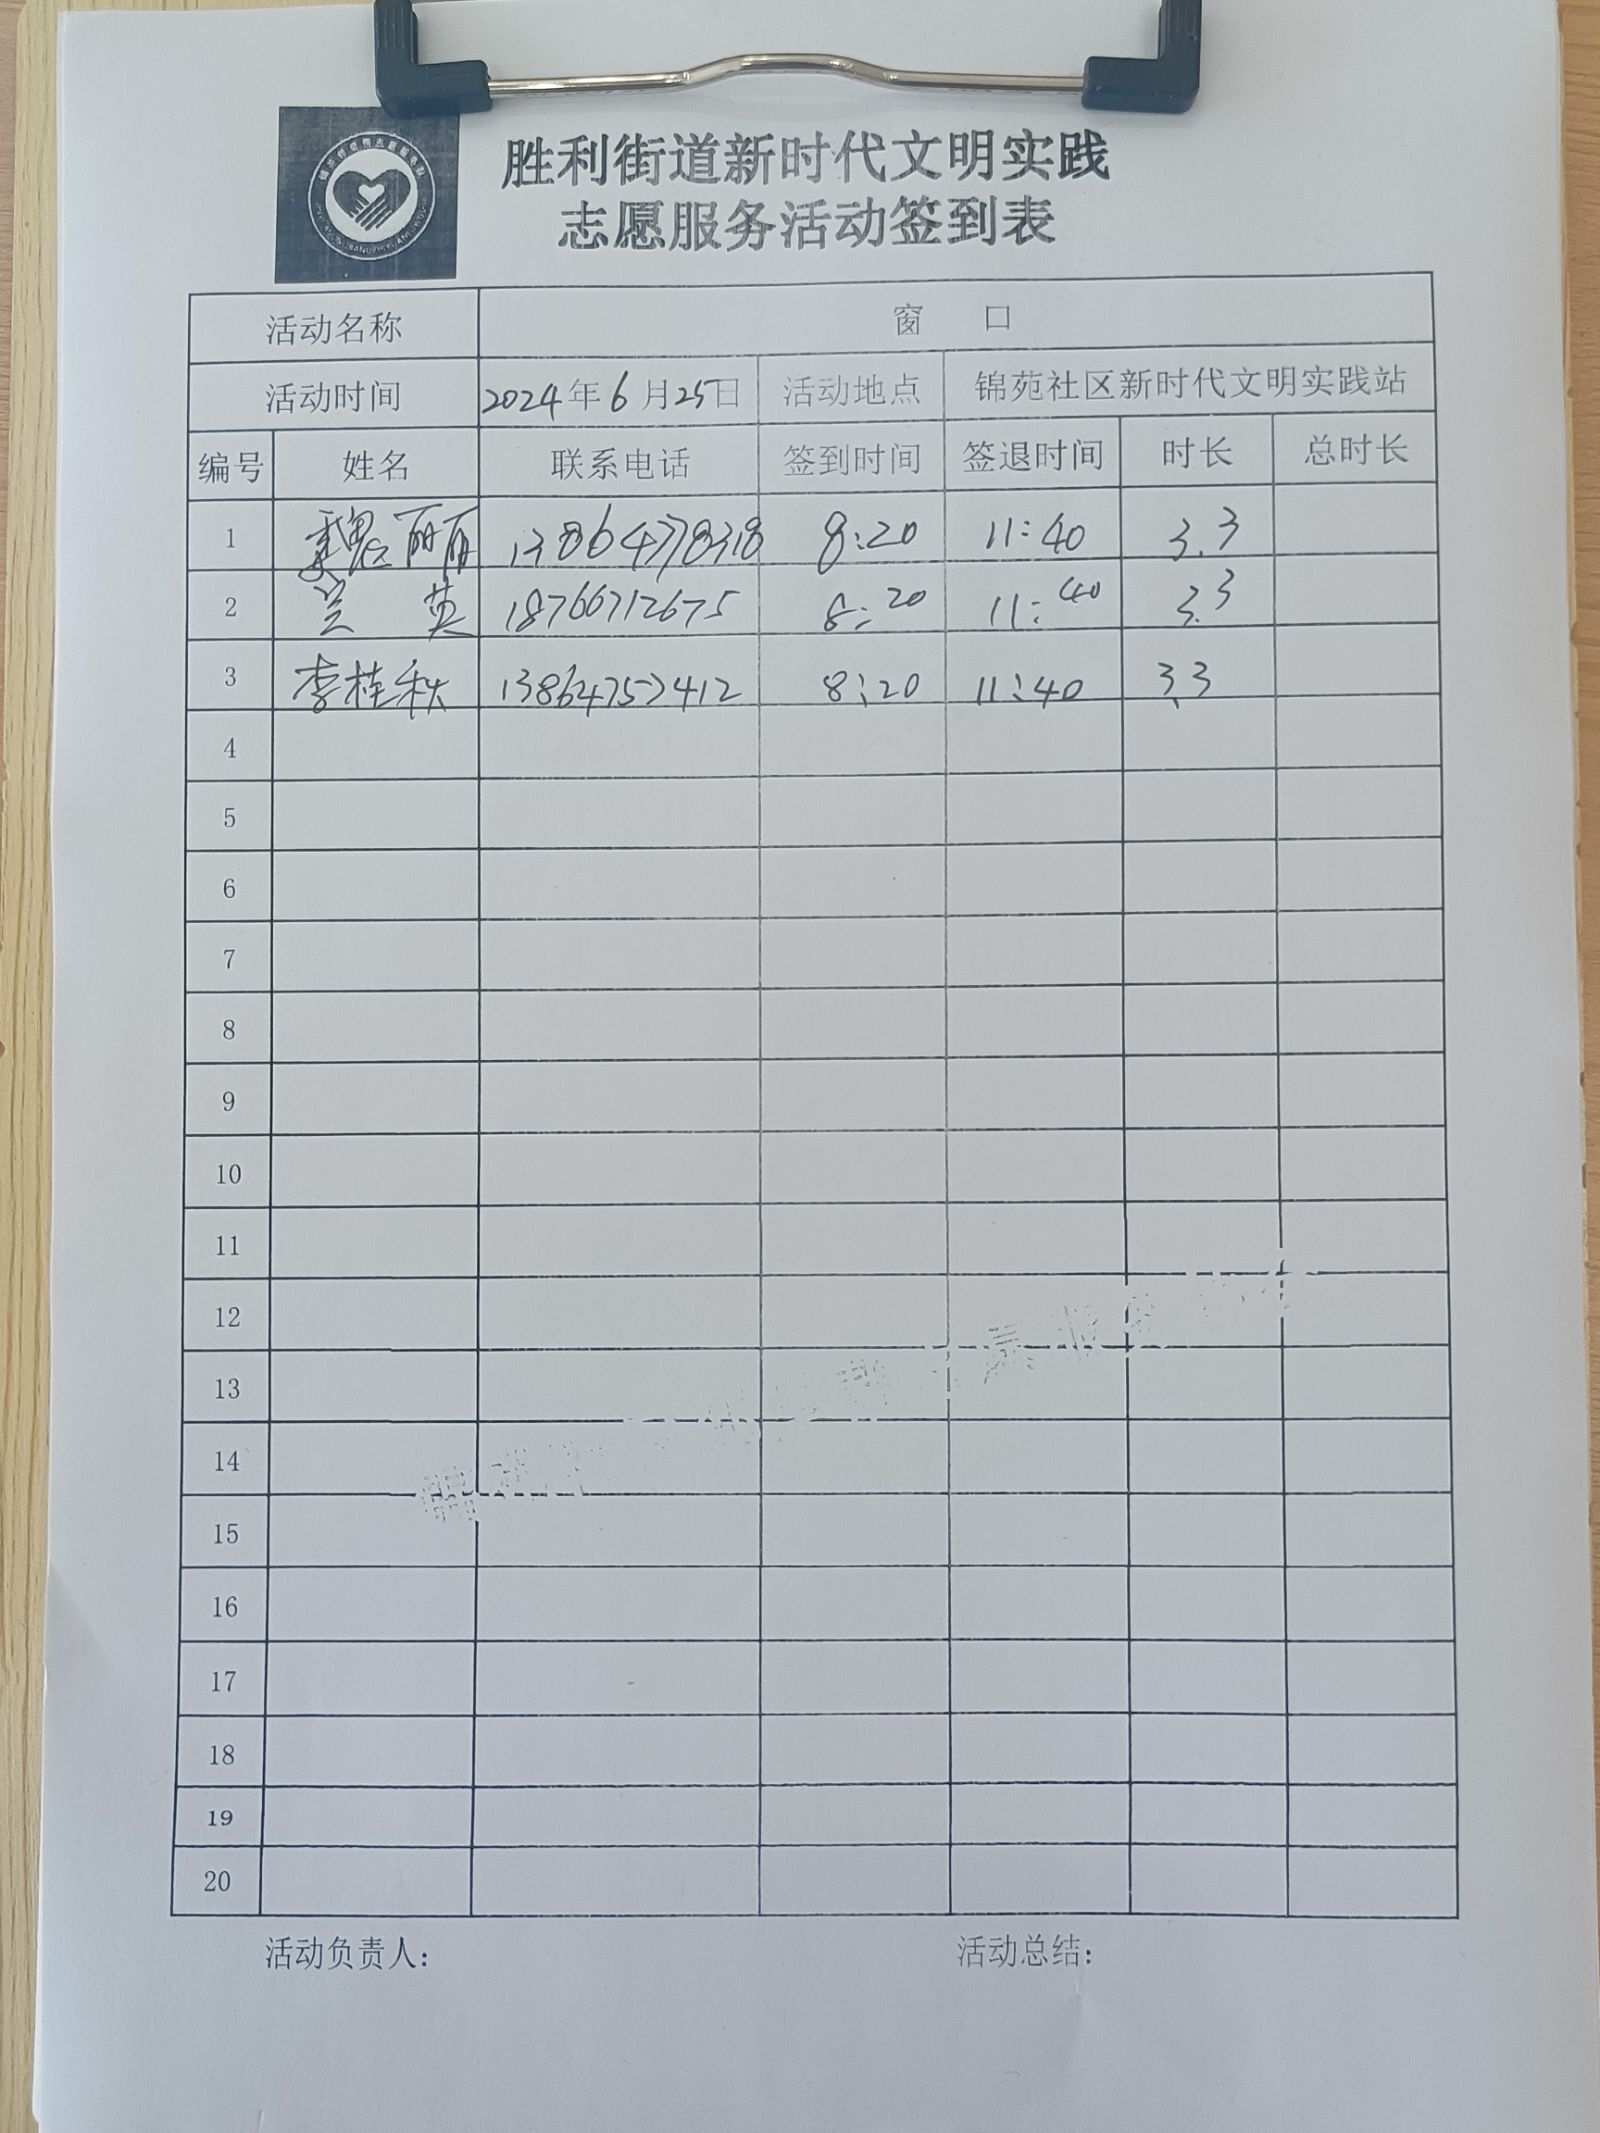 胜利街道新时代文明实践
志愿服务活动签到表
活动名称 窗 口
活动时间 2024年6月25日 活动地点 锦苑社区新时代文明实践站
编号 姓名 联系电话 签到时间 签退时间 时长 总时长
1 魏丽丽 13864778318 8:20 11:40 3.3
2 兰英 18766712675 8:20 11:40 3.3
3 李桂秋 13864757412 8:20 11:40 3.3
4
5
6
7
8
9
10
11
12
13
14
15
16
17
18
19
20
活动负责人: 活动总结: